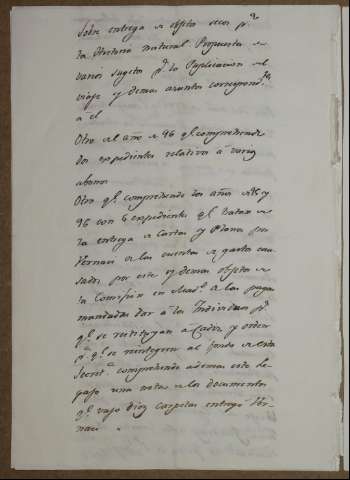 Sobre entrega de efectos secos p.ª
la Historia natural. Propuesta de
varios sugetos p.ª la Publicacion del
viaje y demas asuntos correspond.tes
a el
Otro del año de 96 q.e comprehende
dos expedientes relativos a varios
abonos
Otro q.e comprehende dos años de 95 y
96 con 6 expedientes q.e tratan de
la entrega de Cartas y Planos por
Bernaci de las cuentas de gastos cau-
sados por este y demas objetos de
la Comision en Mad.d de las pagas
mandadas dar a los Individuos p.ª
q.e se restituyan a Cadiz y orden
p.ª q.e se reintegren al fondo de esta
Secret.ª comprehende ademas este le-
gajo una nota de los documentos
q.e vajo diez carpetas entregó Ber-
naci.